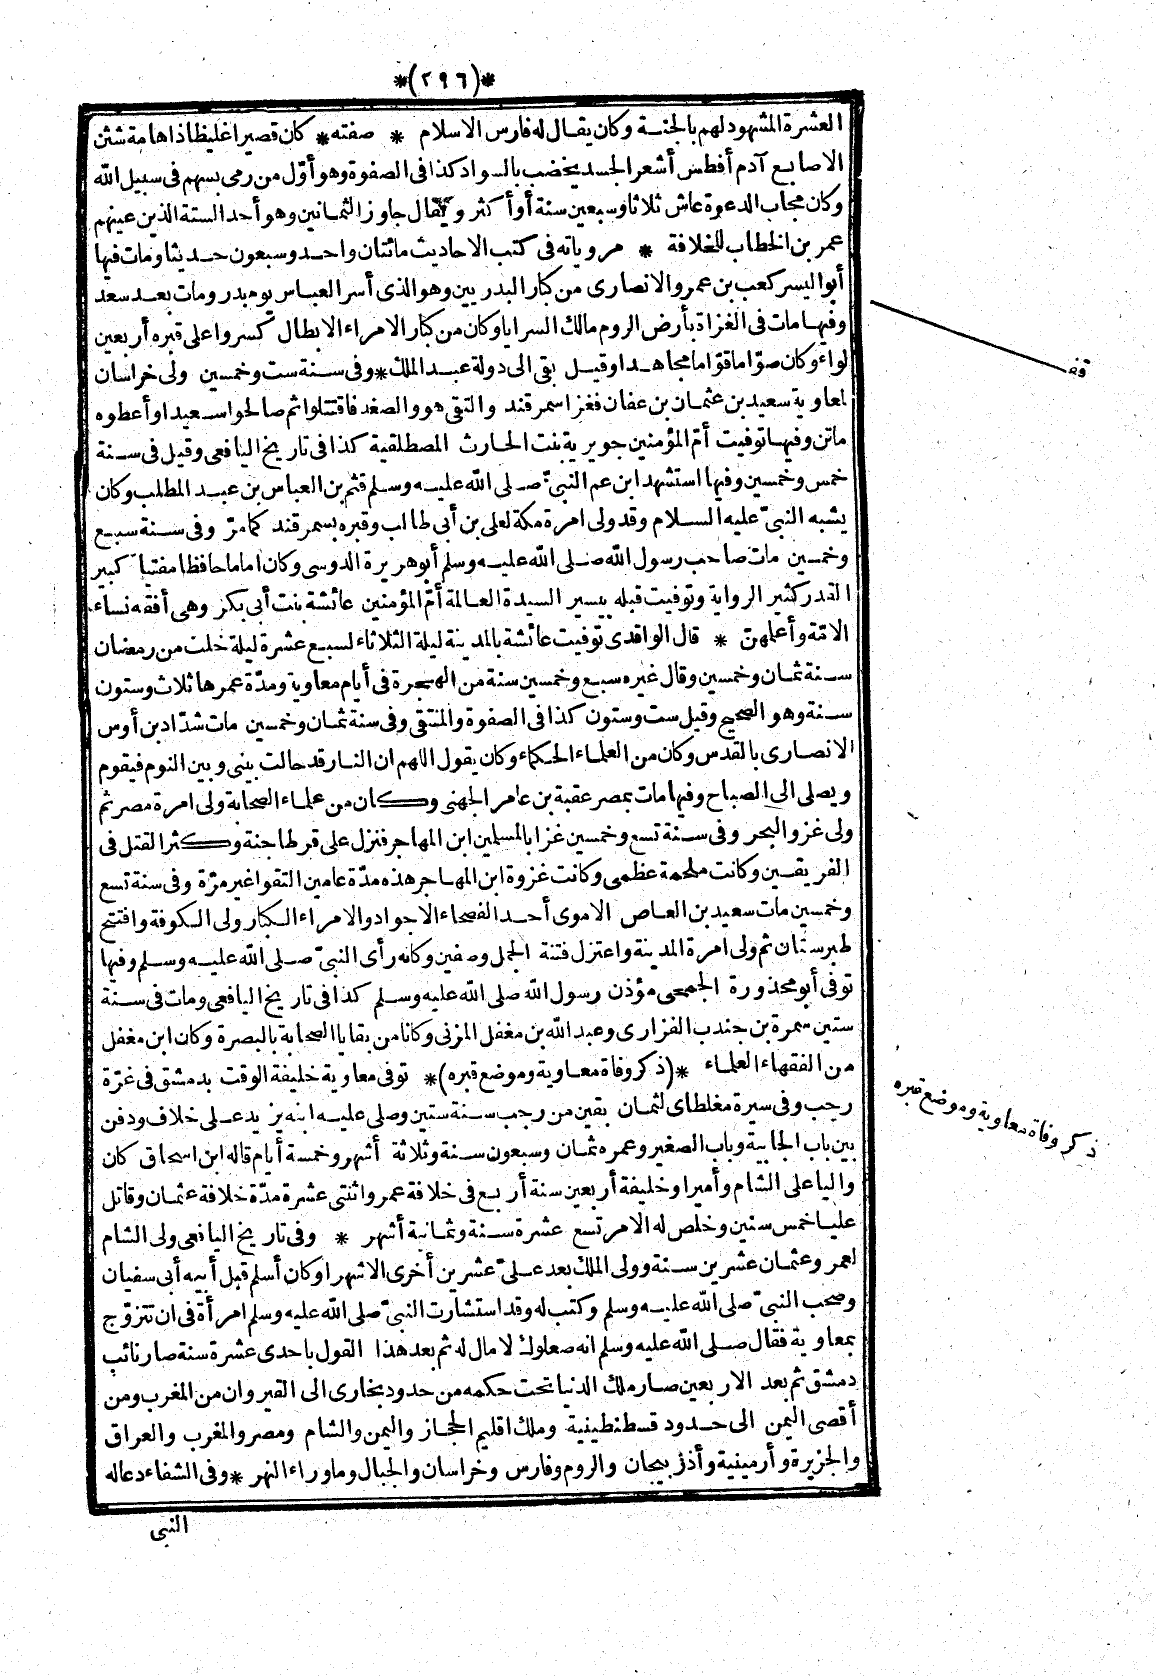 *(٢٩٦)*
العشرة المشهود لهم بالجنة وكان يقال له فارس الاسلام * صفته * كان قصيرا غليظا ذا هامة شثن
الاصابع آدم أفطس أشعر الجسد يخضب بالسواد كذا فى الصفوة وهو أوّل من رمى بسهم فى سبيل الله
وكان مجاب الدعوة عاش ثلاثا وسبعين سنة أو أكثر ويقال جاوز الثمانين وهو أحد الستة الذين عينهم
عمر بن الخطاب للخلافة * مروياته فى كتب الاحاديث مائتان واحد وسبعون حديثا ومات فيها
أبو اليسر كعب بن عمرو الانصارى من كبار البدريين وهو الذى أسر العباس يوم بدر ومات بعد سعد
وفيها مات فى الغزاة بأرض الروم مالك السرايا وكان من كبار الامراء الابطال كسروا على قبره أربعين
لواء وكان صوّاما قوّاما مجاهدا وقيل بقى الى دولة عبد الملك * وفى سنة ست وخمسين ولى خراسان
لمعاوية سعيد بن عثمان بن عفان فغزا سمرقند والتقى هو والصغد فاقتتلوا ثم صالحوا سعيدا وأعطوه
مائن وفيها توفيت أمّ المؤمنين جويرية بنت الحارث المصطلقية كذا فى تاريخ اليافعى وقيل فى سنة
خمس وخمسين وفيها استشهد ابن عم النبىّ صلى الله عليه وسلم قثم بن العباس بن عبد المطلب وكان
يشبه النبىّ عليه السلام وقد ولى امرة مكة لعلى بن أبى طالب وقبره بسمرقند كما مرّ وفى سنة سبع
وخمسين مات صاحب رسول الله صلى الله عليه وسلم أبو هريرة الدوسى وكان اماما حافظا مفتيا كبير
القدر كثير الرواية وتوفيت قبله بيسير السيدة العالمة أمّ المؤمنين عائشة بنت أبى بكر وهى أفقه نساء
الامّة وأعلمهنّ * قال الواقدى توفيت عائشة بالمدينة ليلة الثلاثاء لسبع عشرة ليلة خلت من رمضان
سنة ثمان وخمسين وقال غيره سبع وخمسين سنة من الهجرة فى أيام معاوية ومدّة عمرها ثلاث وستون
سنة وهو الصحيح وقيل ست وستون كذا فى الصفوة والمنتقى وفى سنة ثمان وخمسين مات شدّاد بن أوس
الانصارى بالقدس وكان من العلماء الحكماء وكان يقول اللهم ان النار قد حالت بينى وبين النوم فيقوم
ويصلى الى الصباح وفيها مات بمصر عقبة بن عامر الجهنى وكان من علماء الصحابة ولى امرة مصر ثم
ولى غزو البحر وفى سنة تسع وخمسين غزا بالمسلمين ابن المهاجر فنزل على قرطاجنة وكثر القتل فى
الفريقين وكانت ملحمة عظمى وكانت غزوة ابن المهاجر هذه مدّة عامين التقوا غير مرّة وفى سنة تسع
وخمسين مات سعيد بن العاص الاموى أحد الفصحاء الاجواد والامراء الكبار ولى الكوفة وافتتح
طبرستان ثم ولى امرة المدينة واعتزل فتنة الجمل وصفين وكانه رأى النبىّ صلى الله عليه وسلم وفيها
توفى أبو محذورة الجمحى مؤذن رسول الله صلى الله عليه وسلم كذا فى تاريخ اليافعى ومات فى سنة
ستين سمرة بن جندب الفزارى وعبد الله بن مغفل المزنى وكانا من بقايا الصحابة بالبصرة وكان ابن مغفل
من الفقهاء العلماء * (ذكر وفاة معاوية وموضع قبره) * توفى معاوية خليفة الوقت بدمشق فى غرّة
رجب وفى سيرة مغلطاى لثمان بقين من رجب سنة ستين وصلى عليه ابنه يزيد على خلاف ودفن
بين باب الجابية وباب الصغير وعمره ثمان وسبعون سنة وثلاثة أشهر وخمسة أيام قاله ابن اسحاق كان
واليا على الشام وأميرا وخليفة أربعين سنة أربع فى خلافة عمر واثنتى عشرة مدّة خلافة عثمان وقاتل
عليا خمس سنين وخلص له الامر تسع عشرة سنة وثمانية أشهر * وفى تاريخ اليافعى ولى الشام
لعمر وعثمان عشرين سنة وولى الملك بعد علىّ عشرين أخرى الا شهرا وكان أسلم قبل أبيه أبى سفيان
وصحب النبىّ صلى الله عليه وسلم وكتب له وقد استشارت النبىّ صلى الله عليه وسلم امرأة فى ان تتزوّج
بمعاوية فقال صلى الله عليه وسلم انه صعلوك لا مال له ثم بعد هذا القول باحدى عشرة سنة صار نائب
دمشق ثم بعد الاربعين صار ملك الدنيا تحت حكمه من حدود بخارى الى القيروان من المغرب ومن
أقصى اليمن الى حدود قسطنطينية وملك اقليم الحجاز واليمن والشام ومصر والمغرب والعراق
والجزيرة وأرمينية وأذربيجان والروم وفارس وخراسان والجبال وما وراء النهر * وفى الشفاء دعا له
النبى
قف
ذكر وفاة معاوية وموضع قبره